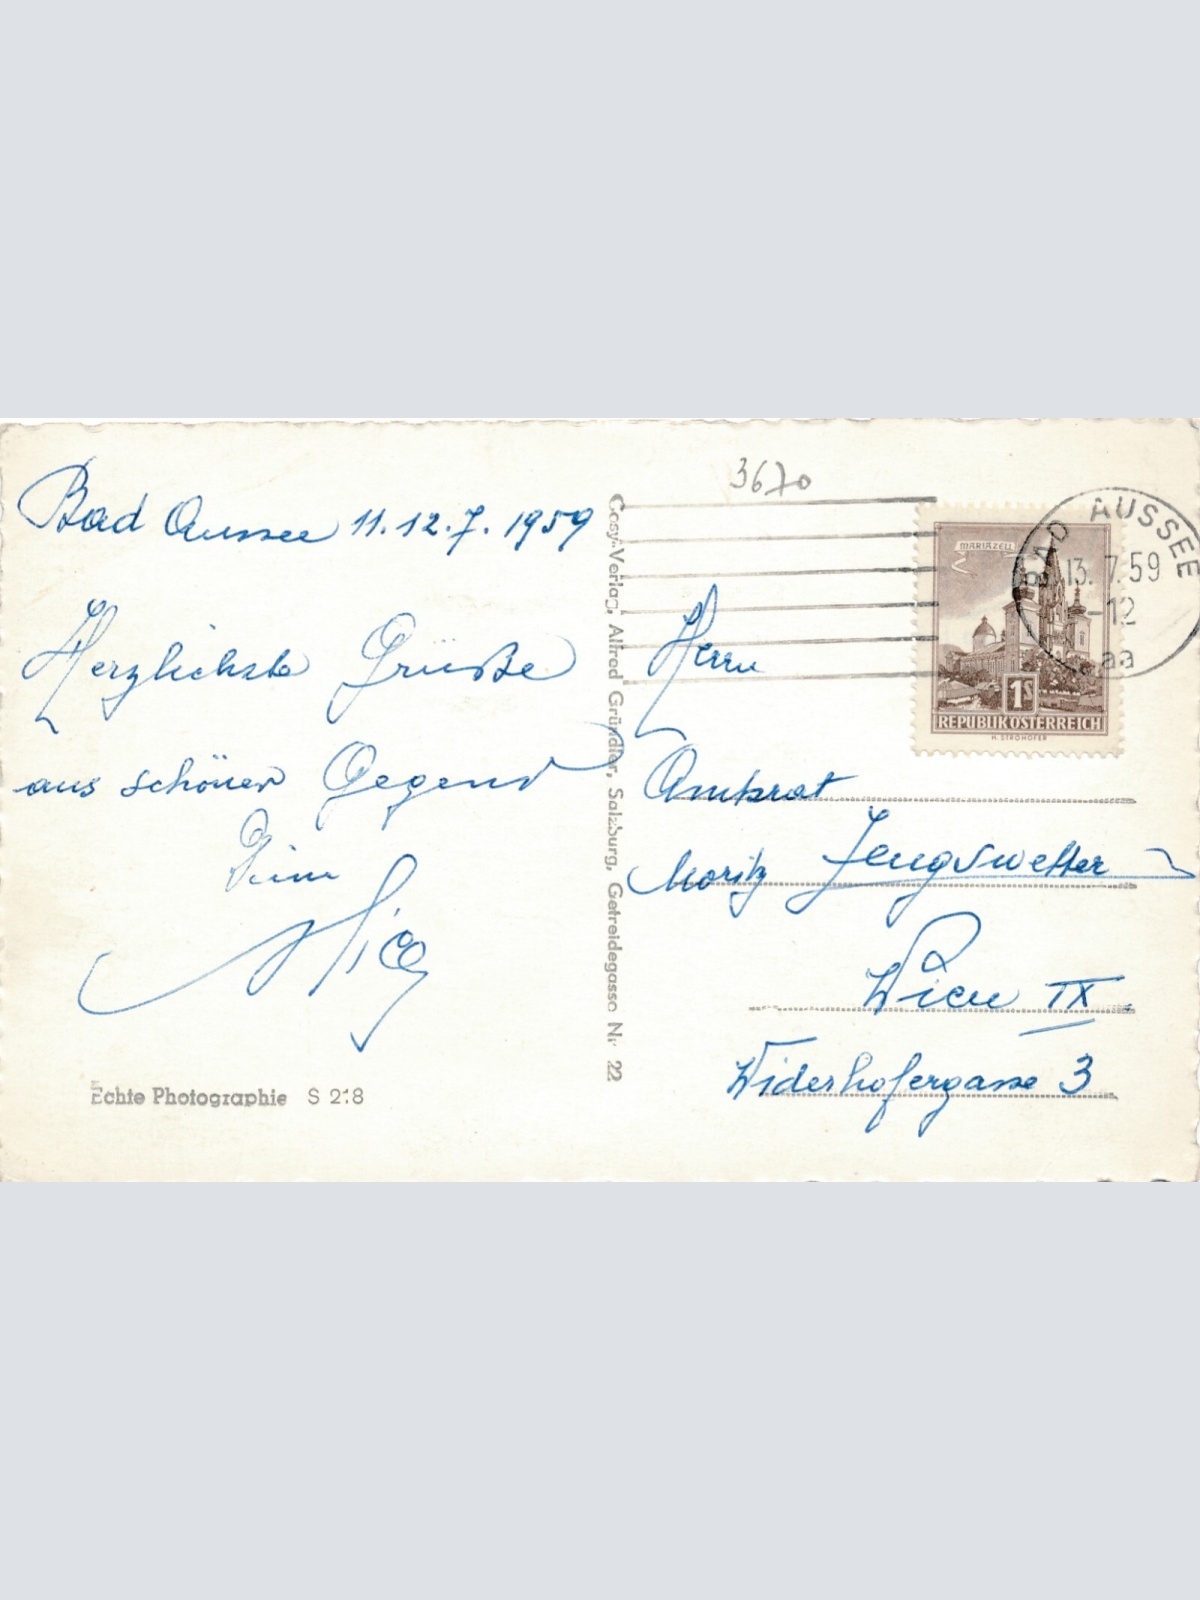 3670
Bad Aussee 11.12.7.1959
Herzlichste Grüße
aus schöner Gegend
Echte Photographie S 218
Cosy-Verlag, Alfred Gründler, Salzburg, Getreidegasse Nr 22
BAD AUSSEE
13.7.59
-12
aa
MARIAZELL
1S
REPUBLIK ÖSTERREICH
H. STROHOFER
Herrn
Amtsrat
Moritz
Wien IX
Widerhofergasse 3